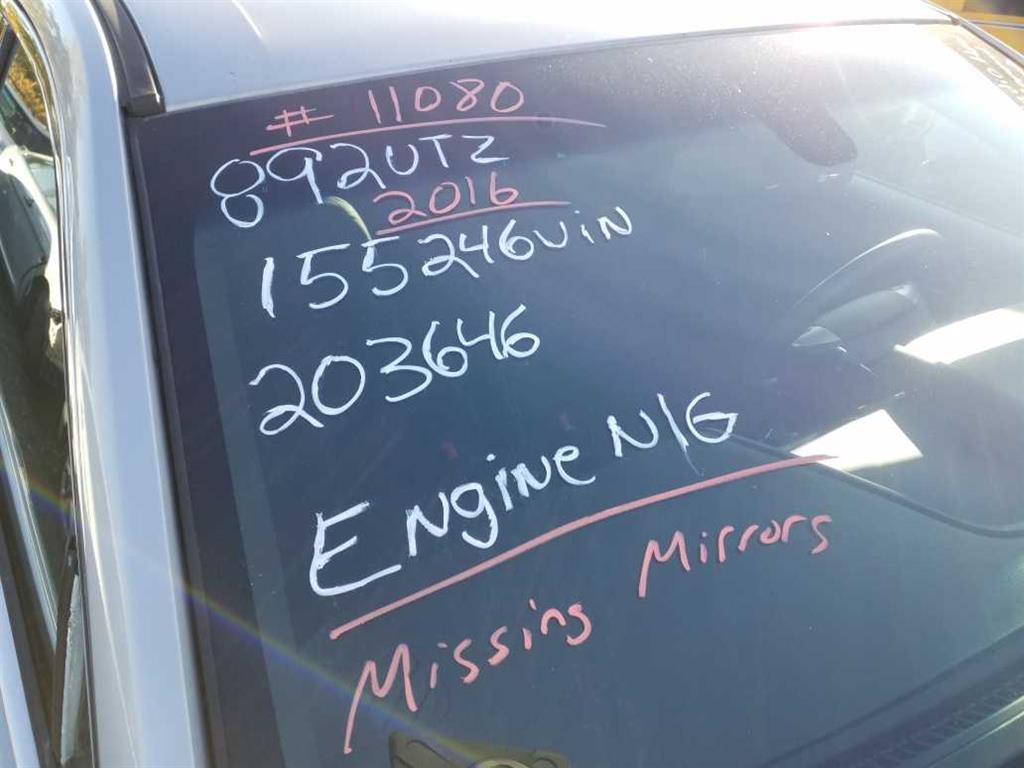 # 11080
892UTZ
2016
155246 ViN
203646
ENgiNe N/G
Missing Mirrors